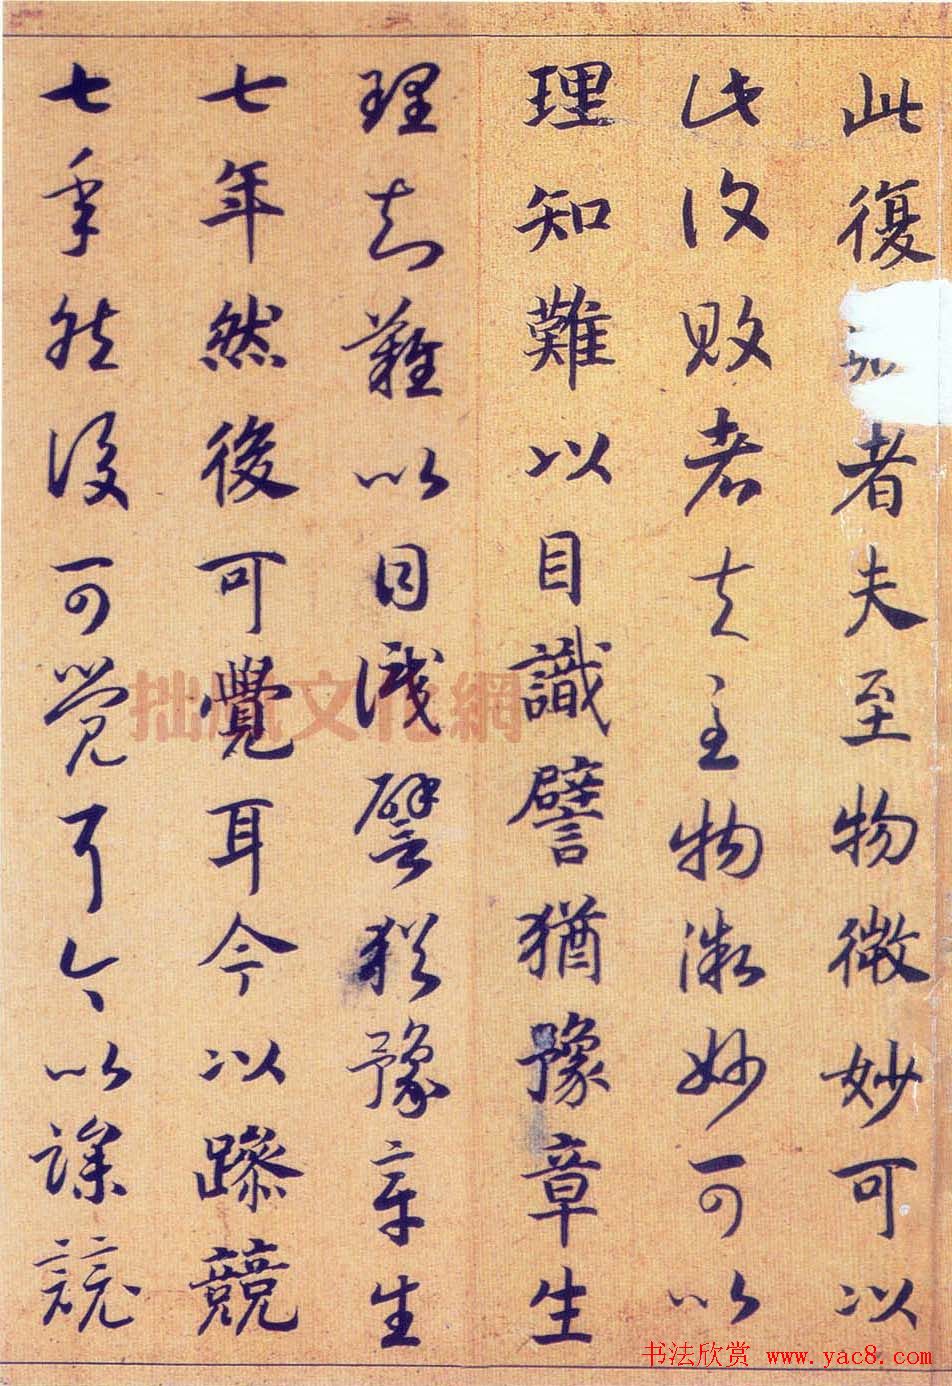 此復者夫至物微妙可以
此復敗者夫至物微妙可以
理知難以目識譬猶豫章生
理知難以目識譬猶豫章生
七年然後可覺耳今以躁競
七年然後可覺耳今以躁競
拙風文化網
书法欣赏 www.yac8.com